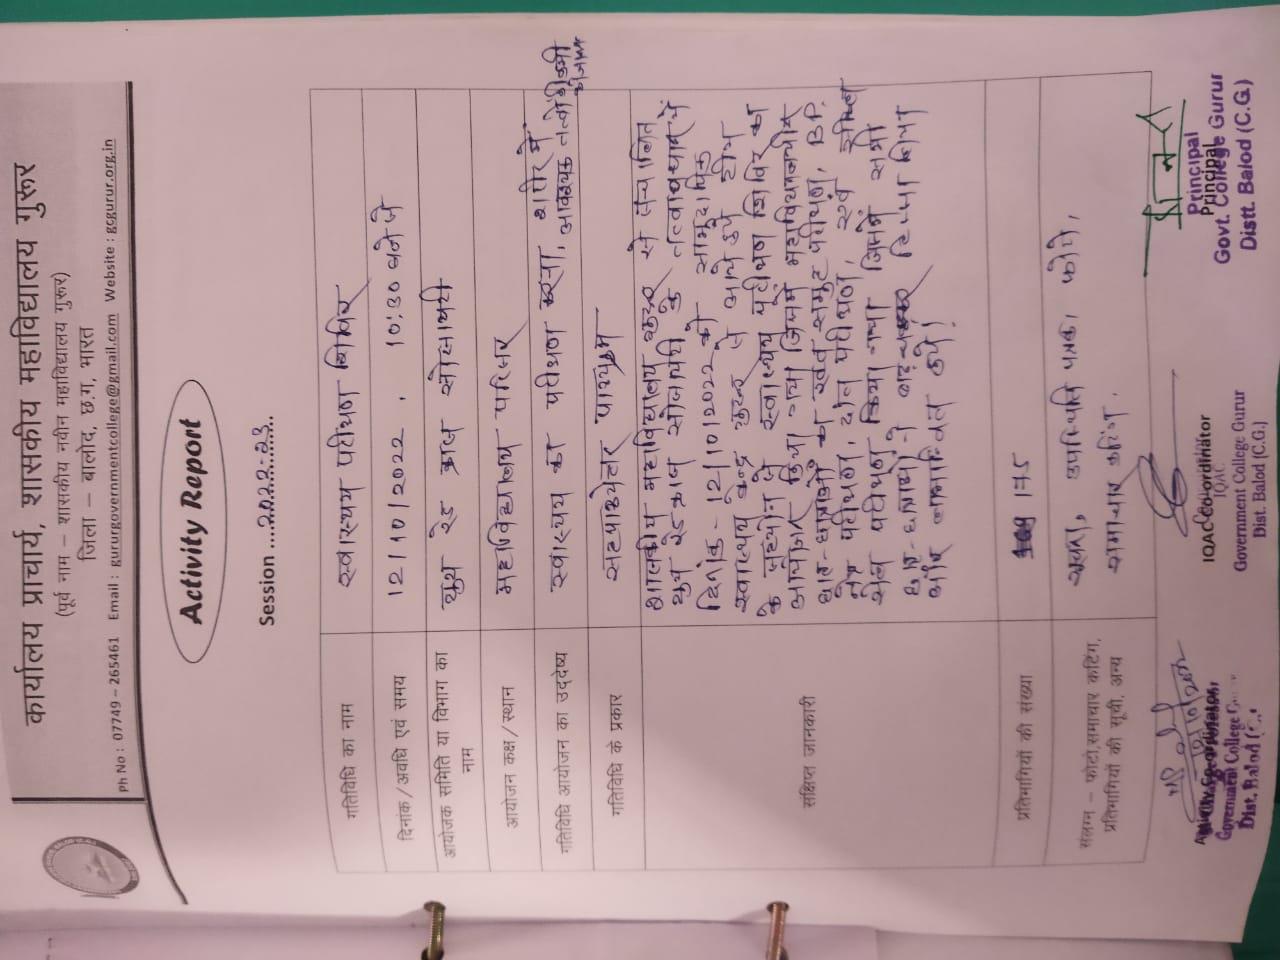 कार्यालय प्राचार्य, शासकीय महाविद्यालय गुरूर
(पूर्व नाम – शासकीय नवीन महाविद्यालय गुरूर)
जिला – बालोद, छ.ग, भारत
Ph No : 07749 – 265461 Email : gururgovernmentcollege@gmail.com Website : gcgurur.org.in
Activity Report
Session ....2022-23....
गतिविधि का नाम स्वास्थ्य परीक्षण शिविर
दिनांक/अवधि एवं समय 12/10/2022 . 10:30 बजे से
आयोजक समिति या विभाग का नाम यूथ रेड क्रास सोसायटी
आयोजन कक्ष/स्थान महाविद्यालय परिसर
गतिविधि आयोजन का उद्देष्य स्वास्थ्य का परीक्षण करना, शरीर में आवश्यक तत्वों की कमी
गतिविधि के प्रकार सहपाठ्येत्तर
संक्षिप्त जानकारी
शासकीय महाविद्यालय गुरूर में संचालित
यूथ रेडक्रास सोसायटी के तत्वावधान में
दिनांक - 12/10/2022 को सामुदायिक
स्वास्थ्य केन्द्र गुरूर से आये हुये टीम
के सहयोग से स्वास्थ्य परीक्षण शिविर का
आयोजन किया गया जिसमें महाविद्यालयीन
छात्र-छात्राओं का रक्त समूह परीक्षण, BP.
नेत्र परीक्षण, दांत परीक्षण, एवं
परीक्षण किया गया जिसमें सभी
छात्र-छात्राओं ने हिस्सा लिया
और लाभान्वित हुये।
प्रतिभागियों की संख्या 175
संलग्न – फोटो,समाचार कटिंग, प्रतिभागियों की सूची, अन्य
सूचना, उपस्थिति पत्रक, फोटो,
समाचार कटिंग.
Government College
Dist. Balod
IQAC Co-ordinator
IQAC
Government College Gurur
Dist. Balod (C.G.)
Principal
Principal
Govt. College Gurur
Distt. Balod (C.G.)